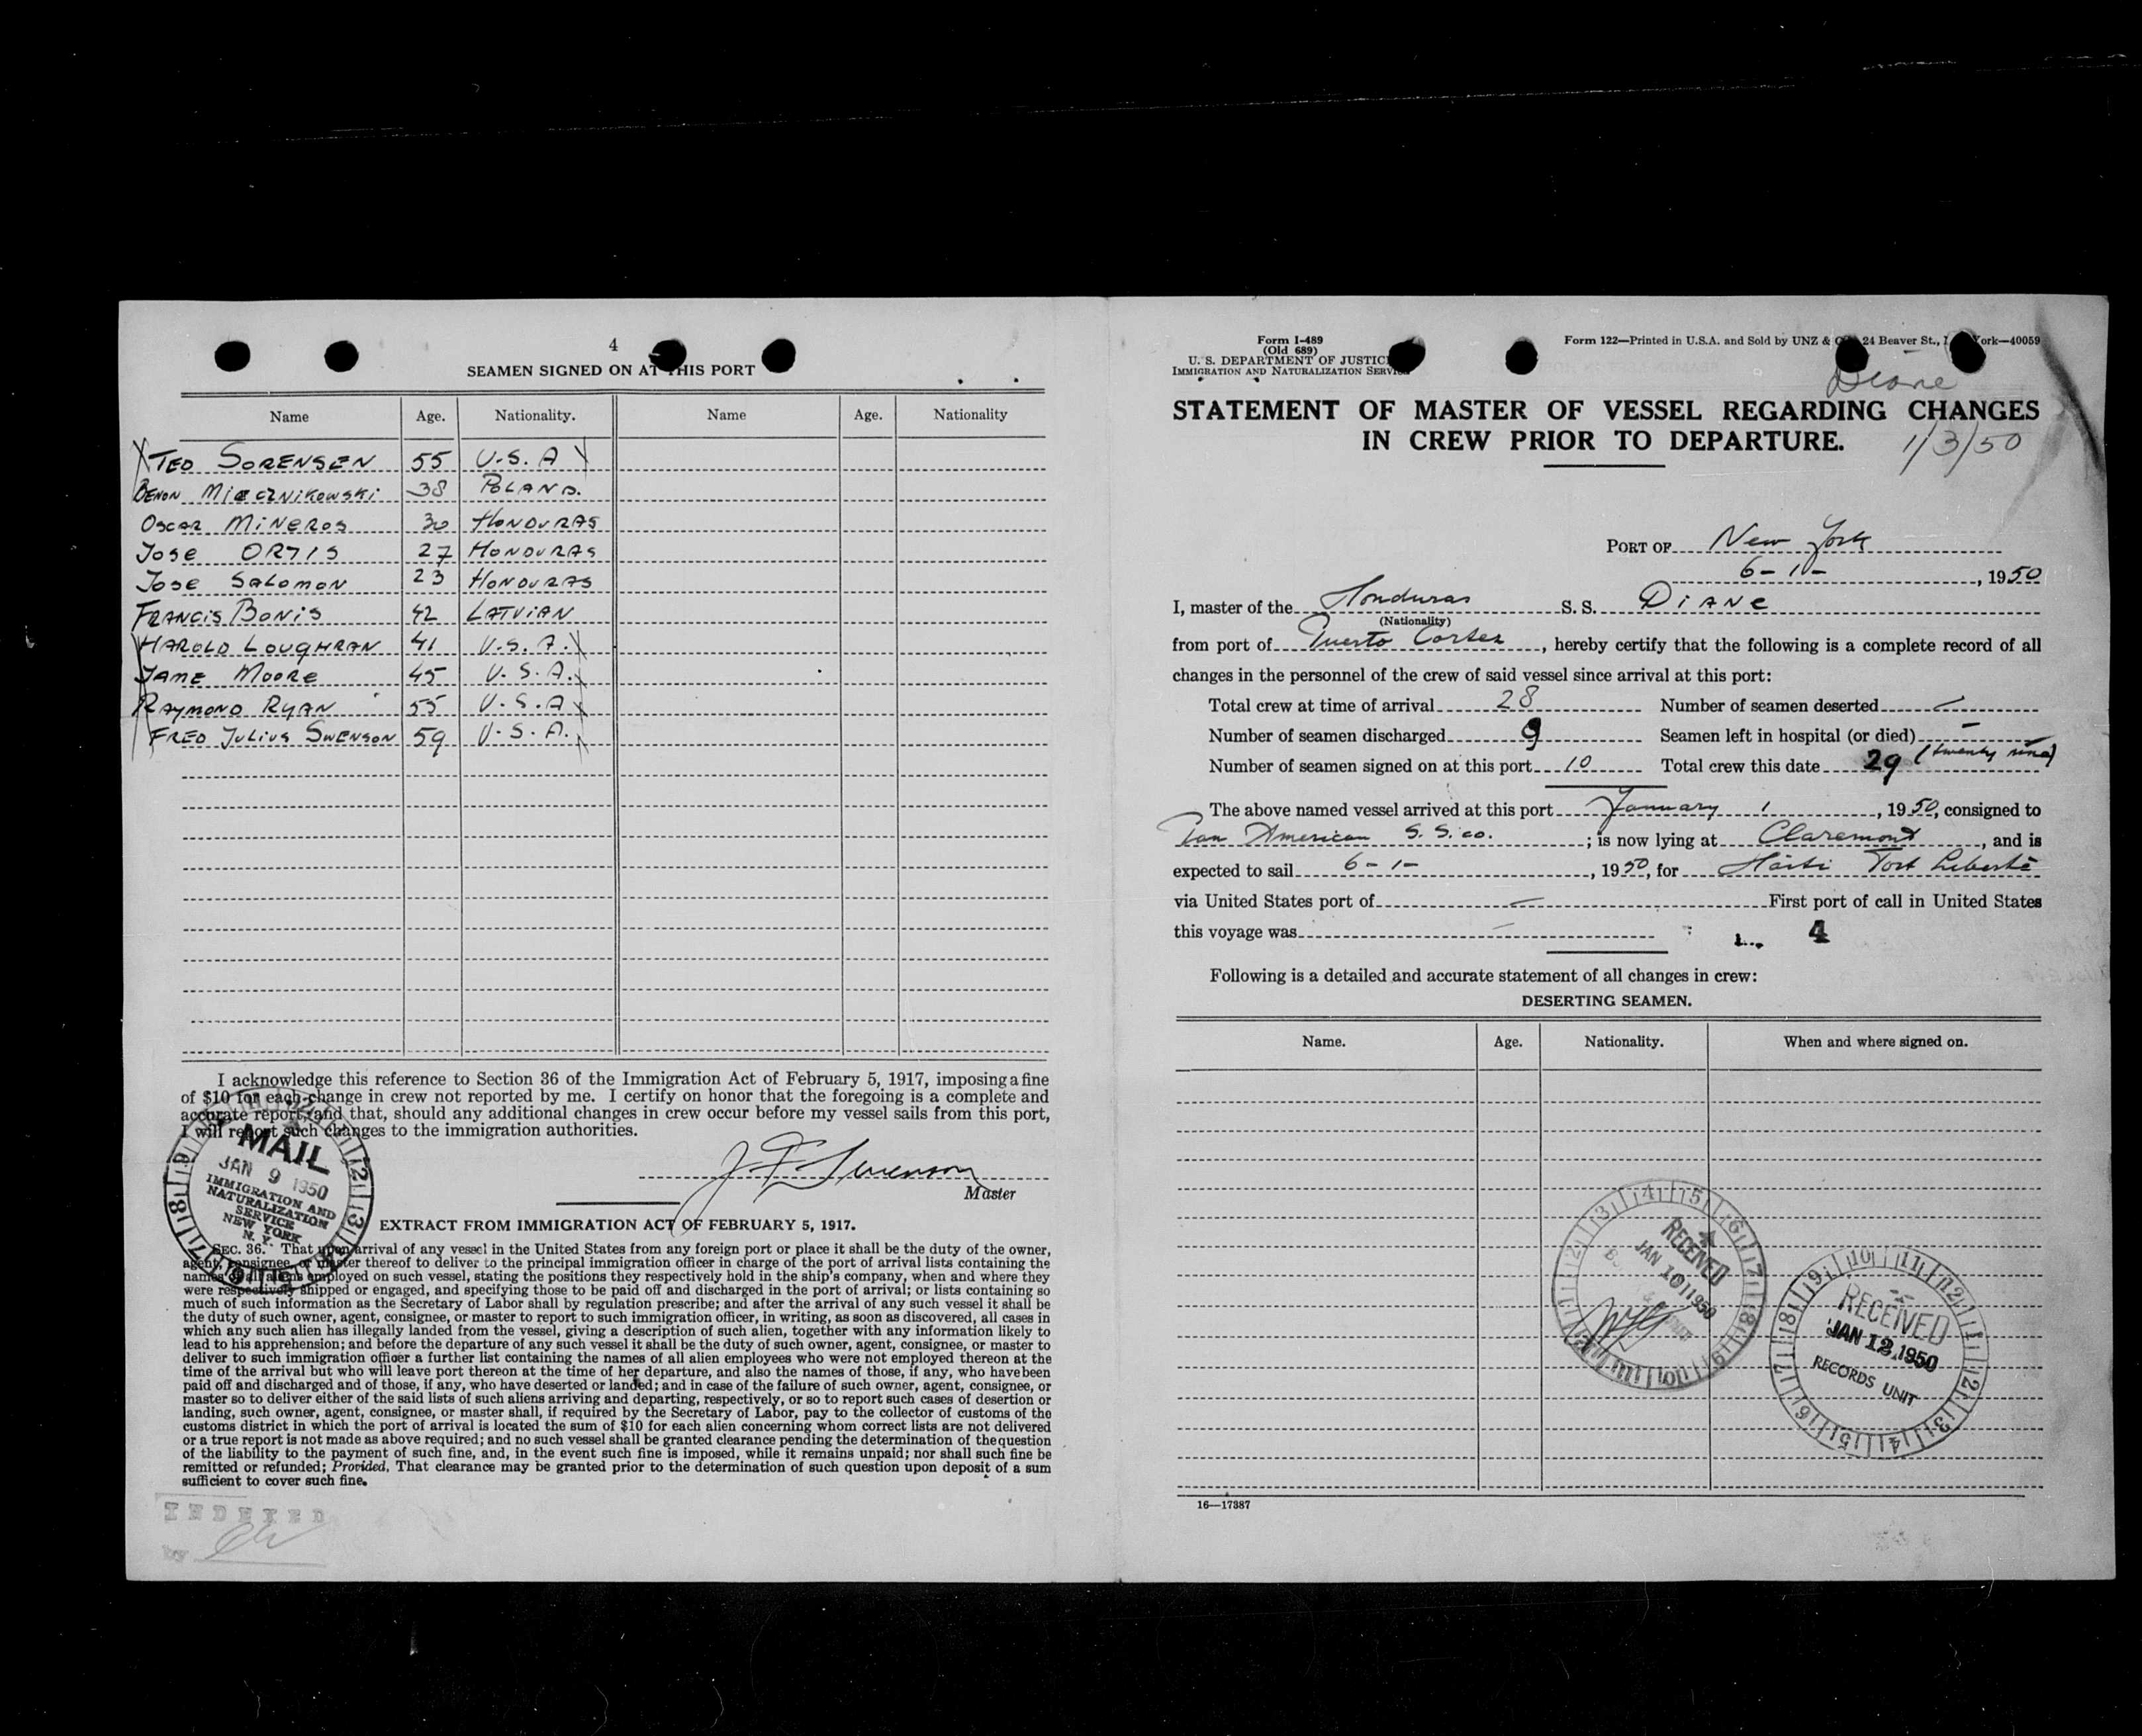 4
SEAMEN SIGNED ON AT THIS PORT
Name Age. Nationality. Name Age. Nationality
X TED SORENSEN 55 U.S.A X
BENON MIECZNIKOWSKI 38 POLAND.
OSCAR MINEROS 30 HONDURAS
JOSE ORTIS 27 HONDURAS
JOSE SALOMON 23 HONDURAS
FRANCIS BONIS 42 LATVIAN
HAROLD LOUGHRAN 41 U.S.A. X
JAME MOORE 45 U.S.A. X
RAYMOND RYAN 55 U.S.A X
FRED JULIUS SWENSON 59 U.S.A. X
I acknowledge this reference to Section 36 of the Immigration Act of February 5, 1917, imposing a fine
of $10 for each change in crew not reported by me. I certify on honor that the foregoing is a complete and
accurate report, and that, should any additional changes in crew occur before my vessel sails from this port,
I will report such changes to the immigration authorities.
MAIL
JAN 9 1950
IMMIGRATION AND
NATURALIZATION
SERVICE
NEW YORK
N. Y.
J F Swenson
Master
EXTRACT FROM IMMIGRATION ACT OF FEBRUARY 5, 1917.
SEC. 36. That upon arrival of any vessel in the United States from any foreign port or place it shall be the duty of the owner,
agent, consignee, or master thereof to deliver to the principal immigration officer in charge of the port of arrival lists containing the
names of all aliens employed on such vessel, stating the positions they respectively hold in the ship's company, when and where they
were respectively shipped or engaged, and specifying those to be paid off and discharged in the port of arrival; or lists containing so
much of such information as the Secretary of Labor shall by regulation prescribe; and after the arrival of any such vessel it shall be
the duty of such owner, agent, consignee, or master to report to such immigration officer, in writing, as soon as discovered, all cases in
which any such alien has illegally landed from the vessel, giving a description of such alien, together with any information likely to
lead to his apprehension; and before the departure of any such vessel it shall be the duty of such owner, agent, consignee, or master to
deliver to such immigration officer a further list containing the names of all alien employees who were not employed thereon at the
time of the arrival but who will leave port thereon at the time of her departure, and also the names of those, if any, who have been
paid off and discharged and of those, if any, who have deserted or landed; and in case of the failure of such owner, agent, consignee, or
master so to deliver either of the said lists of such aliens arriving and departing, respectively, or so to report such cases of desertion or
landing, such owner, agent, consignee, or master shall, if required by the Secretary of Labor, pay to the collector of customs of the
customs district in which the port of arrival is located the sum of $10 for each alien concerning whom correct lists are not delivered
or a true report is not made as above required; and no such vessel shall be granted clearance pending the determination of the question
of the liability to the payment of such fine, and, in the event such fine is imposed, while it remains unpaid; nor shall such fine be
remitted or refunded; Provided, That clearance may be granted prior to the determination of such question upon deposit of a sum
sufficient to cover such fine.
INDEXED
by
Form I-489
(Old 689)
U. S. DEPARTMENT OF JUSTICE
IMMIGRATION AND NATURALIZATION SERVICE
Form 122—Printed in U.S.A. and Sold by UNZ & 24 Beaver St., York—40059
Diane
STATEMENT OF MASTER OF VESSEL REGARDING CHANGES
IN CREW PRIOR TO DEPARTURE.
1/3/50
PORT OF New York
6-1-, 1950
I, master of the Honduras S. S. DIANE
(Nationality)
from port of Puerto Cortez, hereby certify that the following is a complete record of all
changes in the personnel of the crew of said vessel since arrival at this port:
Total crew at time of arrival 28 Number of seamen deserted —
Number of seamen discharged 9 Seamen left in hospital (or died) —
Number of seamen signed on at this port 10 Total crew this date 29 (twenty nine)
The above named vessel arrived at this port January 1, 1950, consigned to
Pan American S.S. co.; is now lying at Claremont, and is
expected to sail 6-1-, 1950, for Haiti Fort Liberté
via United States port of — First port of call in United States
this voyage was —
4
Following is a detailed and accurate statement of all changes in crew:
DESERTING SEAMEN.
Name. Age. Nationality. When and where signed on.
RECEIVED
JAN 10 1950
RECEIVED
JAN 12 1950
RECORDS UNIT
16—17387